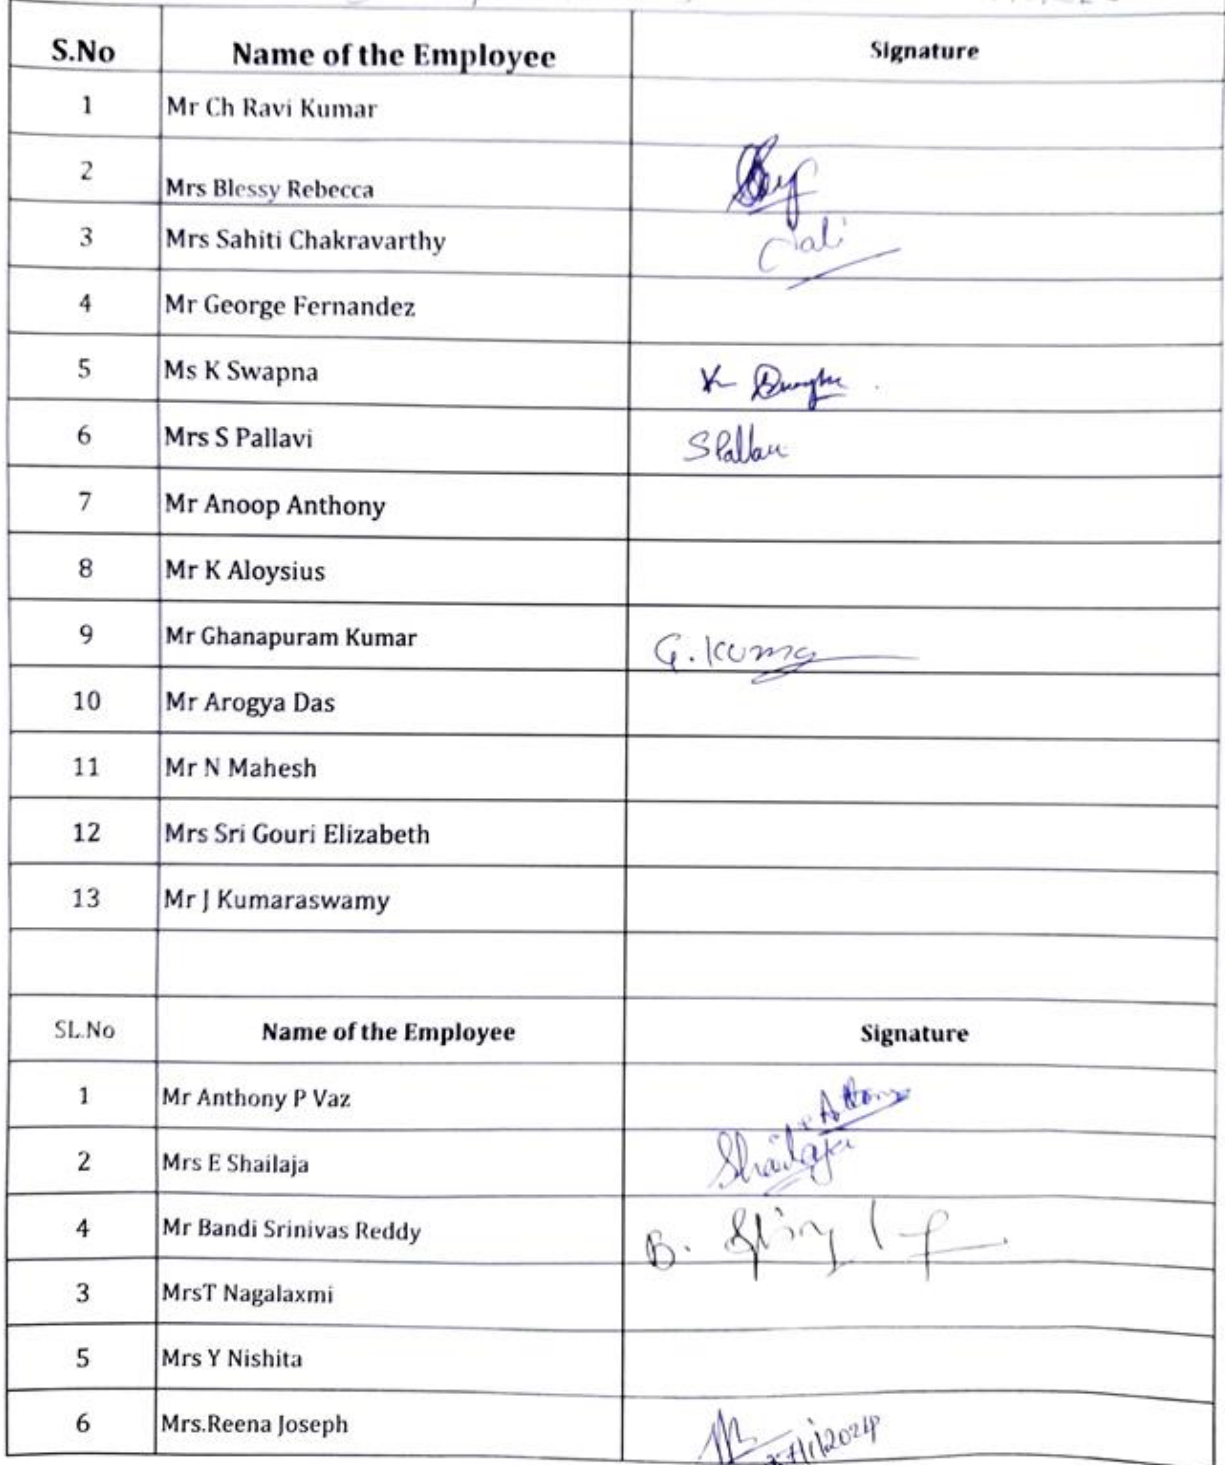 S.No Name of the Employee Signature
1 Mr Ch Ravi Kumar
2 Mrs Blessy Rebecca
3 Mrs Sahiti Chakravarthy
4 Mr George Fernandez
5 Ms K Swapna K
6 Mrs S Pallavi SPallavi
7 Mr Anoop Anthony
8 Mr K Aloysius
9 Mr Ghanapuram Kumar G. Kumar
10 Mr Arogya Das
11 Mr N Mahesh
12 Mrs Sri Gouri Elizabeth
13 Mr J Kumaraswamy
SL.No Name of the Employee Signature
1 Mr Anthony P Vaz
2 Mrs E Shailaja Shailaja
4 Mr Bandi Srinivas Reddy B.
3 MrsT Nagalaxmi
5 Mrs Y Nishita
6 Mrs.Reena Joseph